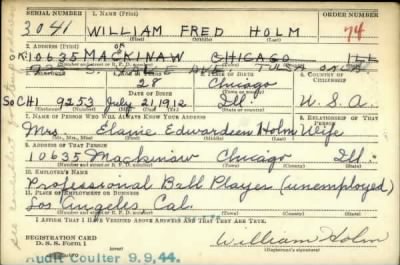 SERIAL NUMBER 1. NAME (Print) ORDER NUMBER
3041 WILLIAM FRED HOLM 74
(First) (Middle) (Last)
2. ADDRESS (Print)
10635 MACKINAW CHICAGO ILL
TULSA OKLA
3. TELEPHONE 4. AGE IN YEARS 5. PLACE OF BIRTH 6. COUNTRY OF CITIZENSHIP
28 Chicago
DATE OF BIRTH
So CHI 9253 July 21 1912 Ill. U. S. A.
7. NAME OF PERSON WHO WILL ALWAYS KNOW YOUR ADDRESS 8. RELATIONSHIP OF THAT PERSON
Mrs Elaine Edwardeen Holm Wife
(Mr., Mrs., Miss) (First) (Middle) (Last)
9. ADDRESS OF THAT PERSON
10635 Mackinaw Chicago Ill.
10. EMPLOYER'S NAME
Professional Ball Player (unemployed)
11. PLACE OF EMPLOYMENT OR BUSINESS
Los Angeles, Cal.
I AFFIRM THAT I HAVE VERIFIED ABOVE ANSWERS AND THAT THEY ARE TRUE.
REGISTRATION CARD
D. S. S. Form 1
William Holm
(Registrant's signature)
Audit Coulter 9.9.44.